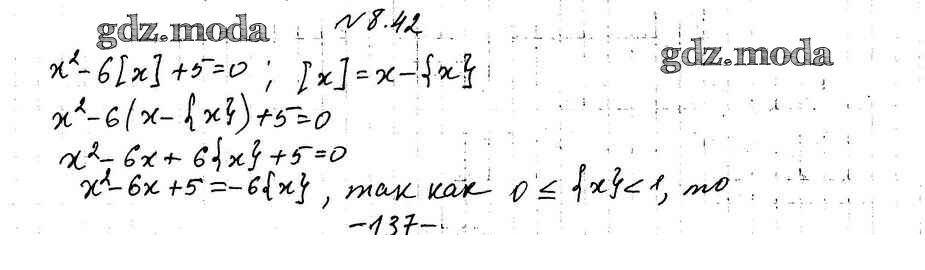 № 8.42
gdz.moda
gdz.moda
x² - 6[x] + 5 = 0 ; [x] = x - {x}
x² - 6(x - {x}) + 5 = 0
x² - 6x + 6{x} + 5 = 0
x² - 6x + 5 = -6{x}, так как 0 ≤ {x} < 1, то
-137-